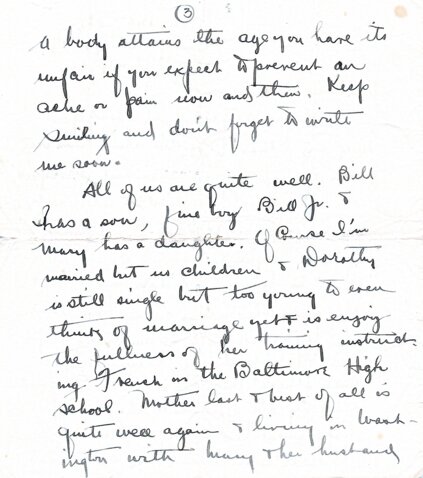 3
a body attains the age you have its
unfair if you expect to prevent an
ache or pain now and then. Keep
smiling and don't forget to write
me soon.
All of us are quite well. Bill
has a son, fine boy Bill Jr. &
Mary has a daughter. Of Course I'm
married but no children & Dorothy
is still single but too young to even
think of marriage yet & is enjoy
the fullness of her training instruct-
ing French in the Baltimore High
school. Mother last & best of all is
quite well again & living in Wash-
ington with Mary & her husband